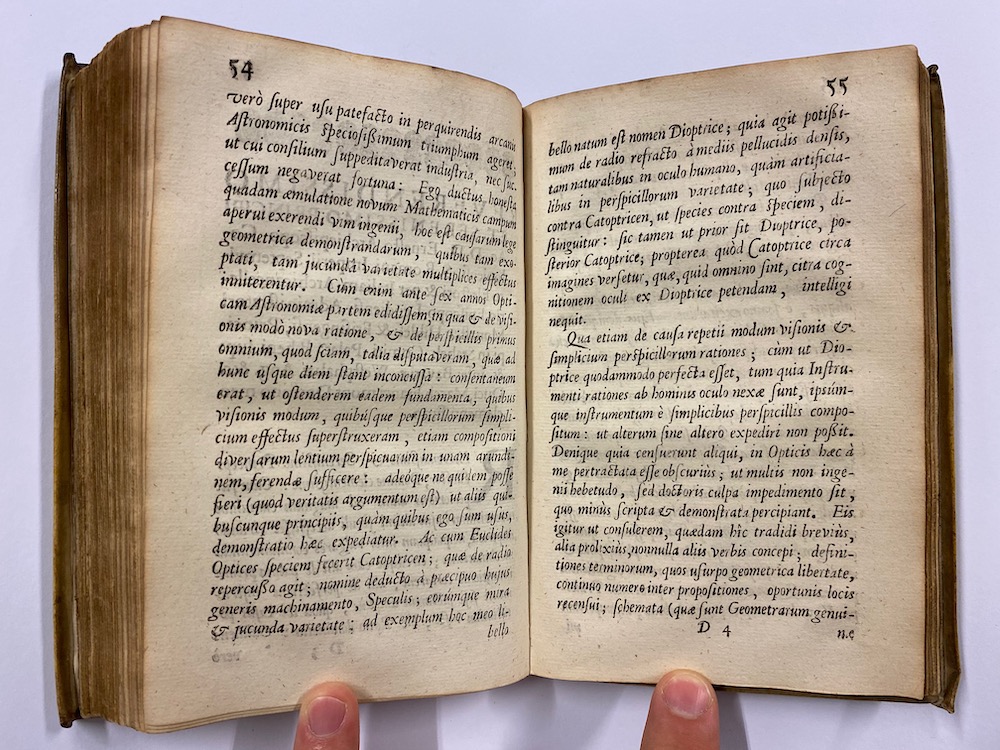 54
verò super usu patefacto in perquirendis arcanis
Astronomicis speciosissimum triumphum ageret,
ut cui consilium suppeditaverat industria, nec suc-
cessum negaverat fortuna: Ego ductus honesta
quadam æmulatione novum Mathematicis campum
aperui exerendi vim ingenii, hoc est causarum lege
geometrica demonstrandarum, quibus tam exo-
ptati, tam jucunda varietate multiplices effectus
inniterentur. Cùm enim ante sex annos Opti-
cam Astronomiæ partem edidissem, in qua & de visi-
onis modò nova ratione, & de perspicillis primus
omnium, quod sciam, talia disputaveram, quæ ad
hunc usque diem stant inconcussa: consentaneum
erat, ut ostenderem eadem fundamenta, quibus
visionis modum, quibúsque perspicillorum simpli-
cium effectus superstruxeram, etiam compositioni
diversarum lentium perspicuarum in unam arundi-
nem, ferendæ sufficere: adeóque ne quidem posse
fieri (quod veritatis argumentum est) ut aliis qui-
buscunque principiis, quàm quibus ego sum usus,
demonstratio hæc expediatur. Ac cum Euclides
Optices speciem fecerit Catoptricen; quæ de radio
repercusso agit; nomine deducto à præcipuo hujus
generis machinamento, Speculis; eorúmque mira
& jucunda varietate: ad exemplum hoc meo li-
bello
55
bello natum est nomen Dioptrice; quia agit potissi-
mum de radio refracto à mediis pellucidis densis,
tam naturalibus in oculo humano, quàm artificia-
libus in perspicillorum varietate; quo subjecto
contra Catoptricen, ut species contra speciem, di-
stinguitur: sic tamen ut prior sit Dioptrice, po-
sterior Catoptrice; propterea quòd Catoptrice circa
imagines versetur, quæ, quid omnino sint, citra cog-
nitionem oculi ex Dioptrice petendam, intelligi
nequit.
Qua etiam de causa repetii modum visionis &
simplicium perspicillorum rationes; cùm ut Dio-
ptrice quodammodo perfecta esset, tum quia Instru-
menti rationes ab hominis oculo nexæ sunt, ipsúm-
que instrumentum è simplicibus perspicillis compo-
situm: ut alterum sine altero expediri non possit.
Denique quia censuerunt aliqui, in Opticis hæc à
me pertractata esse obscuriùs; ut multis non inge-
nii hebetudo, sed doctoris culpa impedimento sit,
quo minùs scripta & demonstrata percipiant. Eis
igitur ut consulerem, quædam hîc tradidi breviùs,
alia prolixiùs, nonnulla aliis verbis concepi; defini-
tiones terminorum, quos usurpo geometrica libertate,
continuo numero inter propositiones, oportunis locis
recensui; schemata (quæ sunt Geometrarum genui-
D 4
ne